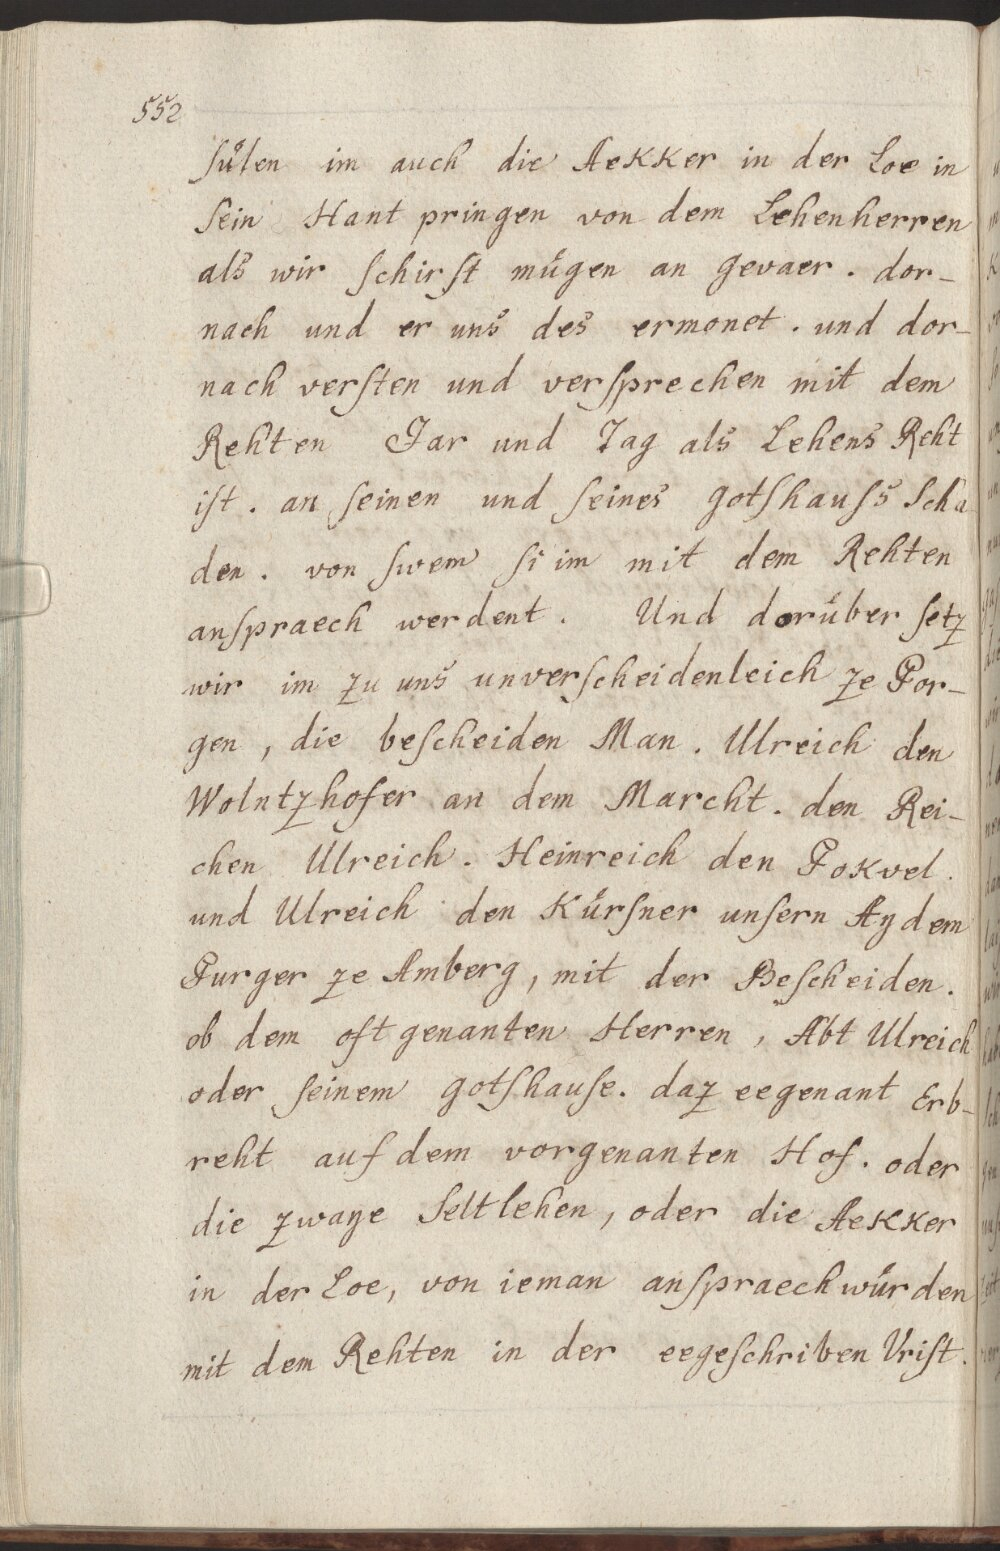 552
sülen im auch die Aekker in der Loe in
sein Hant pringen von dem Lehenherren
als wir schirst mügen an gevaer. dor-
nach und er uns des ermonet. und dor-
nach versten und versprechen mit dem
Rehten Jar und Tag als Lehens Reht
ist. an seinen und seines gotshauss Scha
den. von swem si im mit dem Rehten
anspraech werdent. Und dorüber setz
wir im zu uns unverscheidenleich ze Por-
gen, die bescheiden Man. Ulreich den
Wolntzhofer an dem Marcht. den Rei-
chen Ulreich. Heinreich den Pokvel.
und Ulreich den Kürsner unsern Aydem
Purger ze Amberg, mit der Bescheiden.
ob dem oft genanten Herren, Abt Ulreich
oder seinem gotshause. daz eegenant Erb-
reht auf dem vorgenanten Hof. oder
die zwaye Seltlehen, oder die Aekker
in der Loe, von ieman anspraech würden
mit dem Rehten in der eegeschriben Vrist.